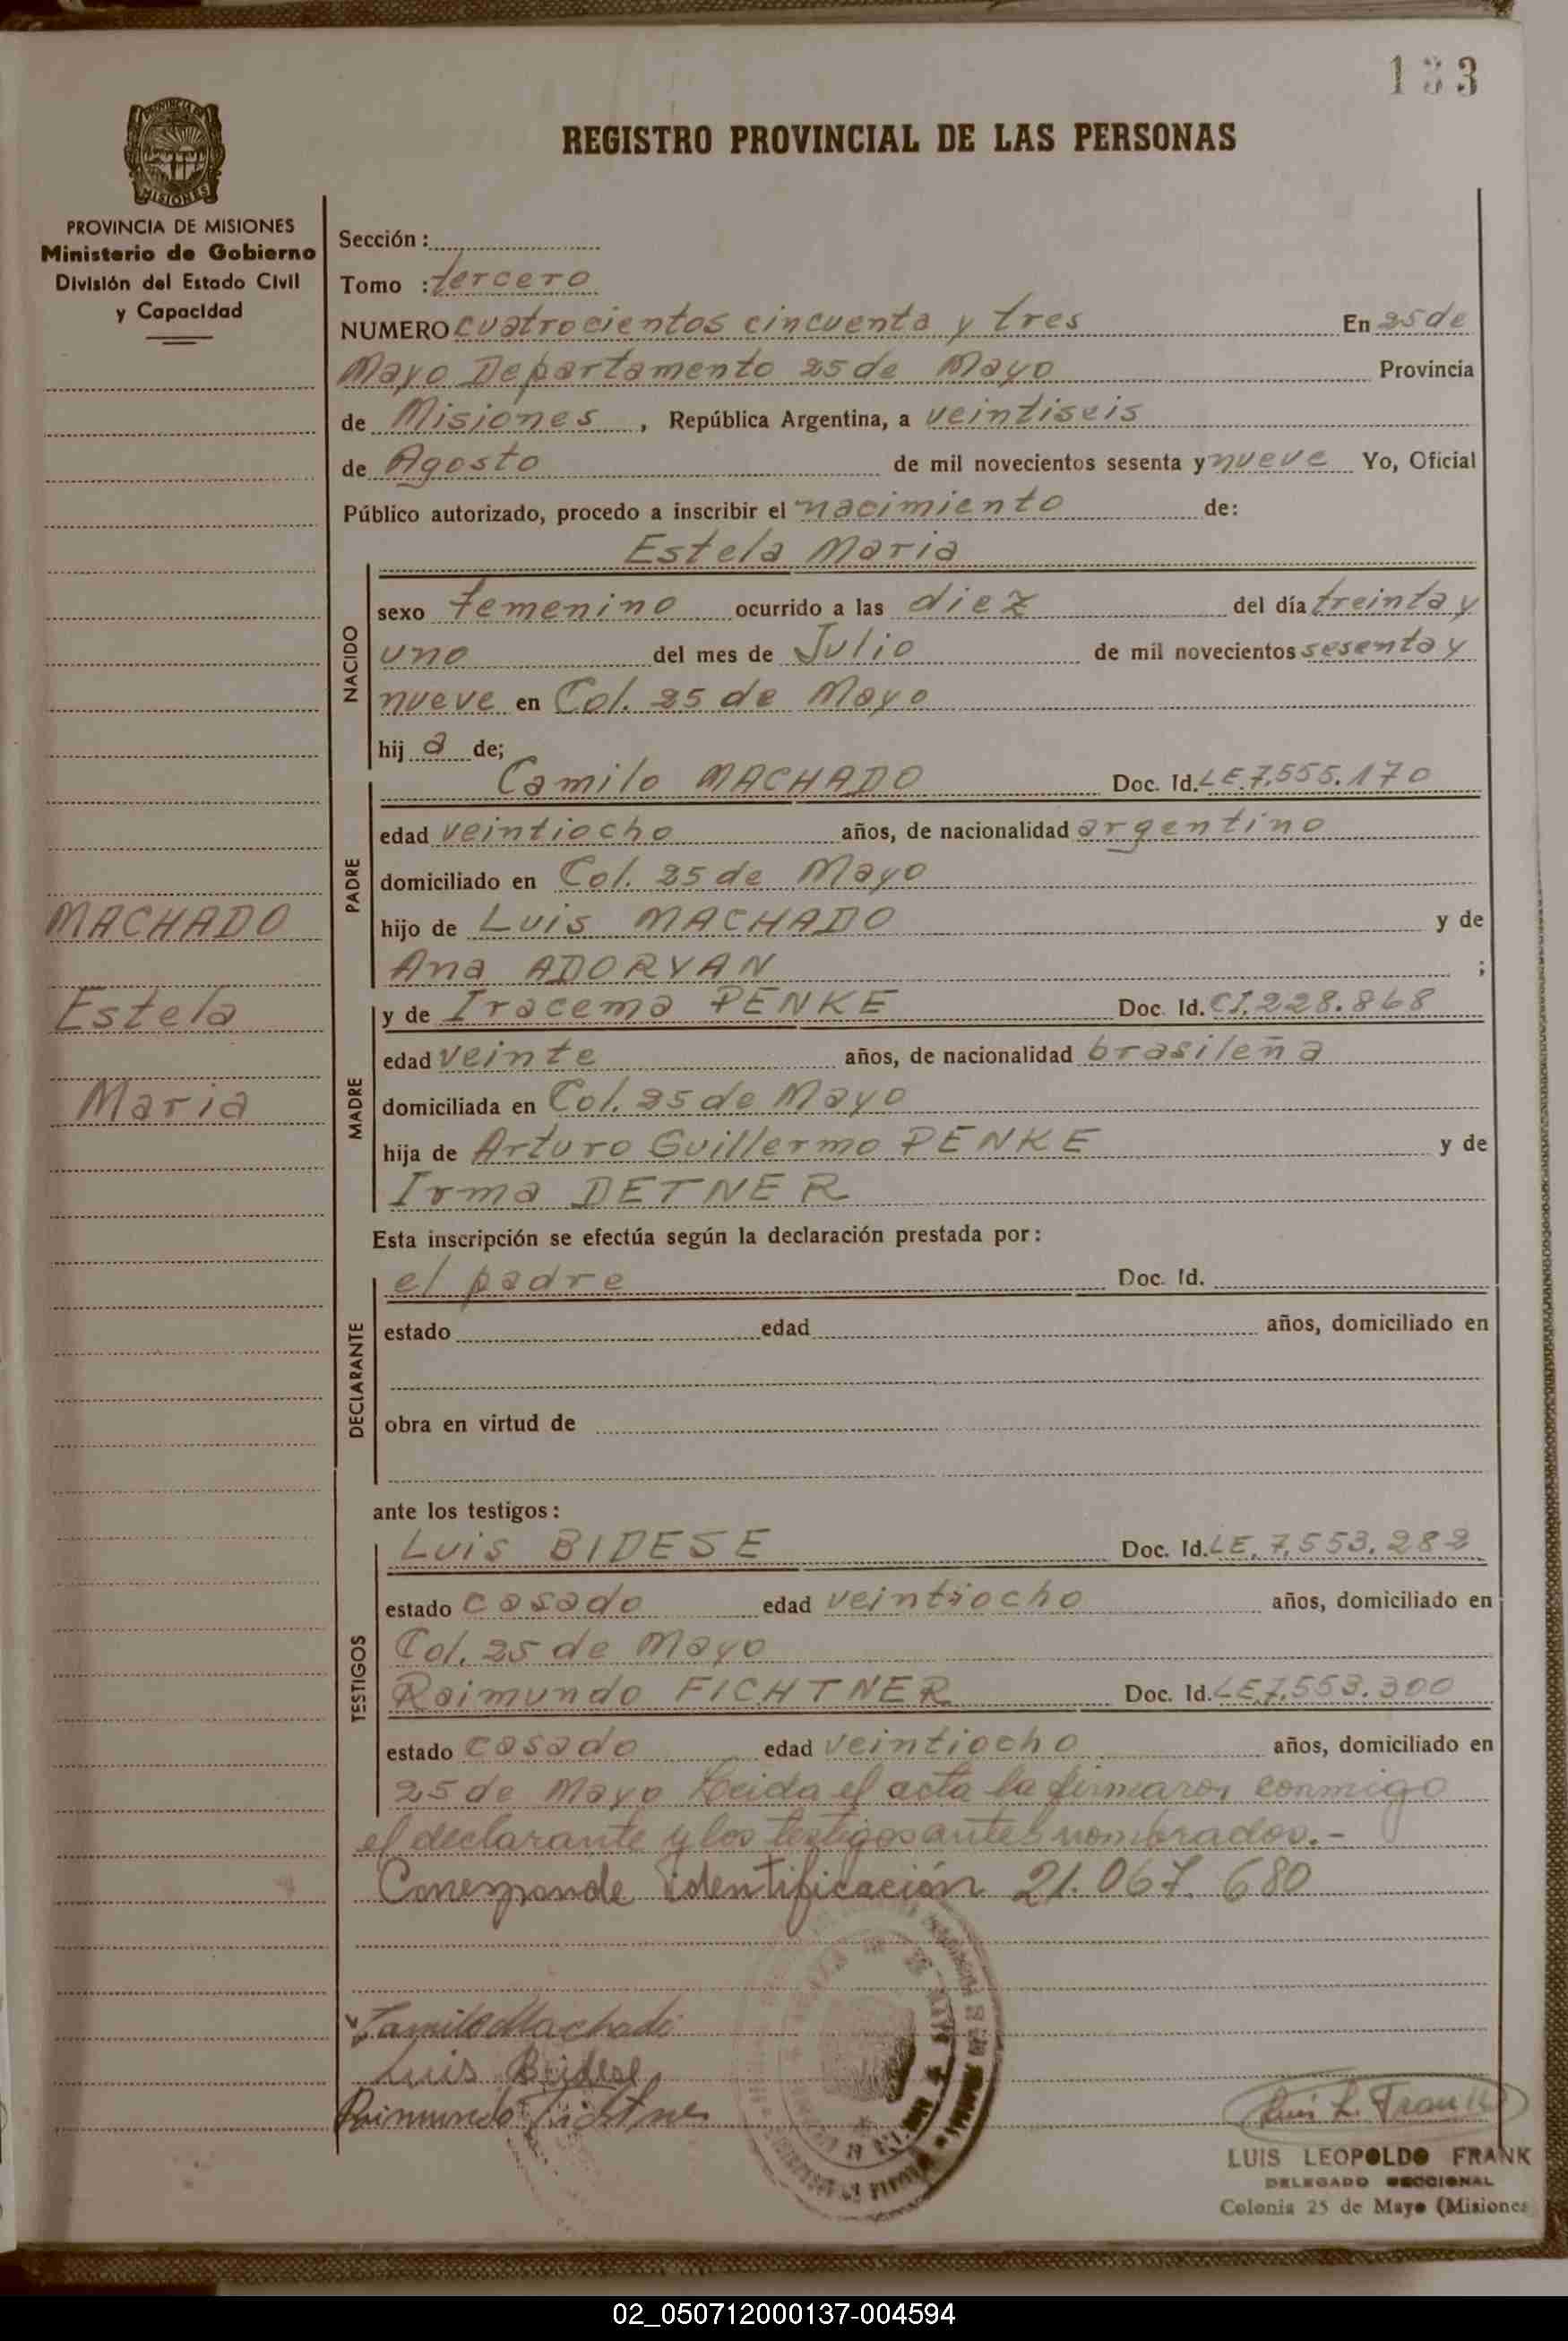 133
REGISTRO PROVINCIAL DE LAS PERSONAS
PROVINCIA DE MISIONES
Ministerio de Gobierno
División del Estado Civil
y Capacidad
Sección :
Tomo : tercero
NUMERO cuatrocientos cincuenta y tres En 25 de
Mayo Departamento 25 de Mayo Provincia
de Misiones, República Argentina, a veintiseis
de Agosto de mil novecientos sesenta y nueve Yo, Oficial
Público autorizado, procedo a inscribir el nacimiento de:
Estela Maria
NACIDO
sexo femenino ocurrido a las diez del día treinta y
uno del mes de Julio de mil novecientos sesenta y
nueve en Col. 25 de Mayo
hij a de;
PADRE
Camilo MACHADO Doc. Id. LE.7.555.170
edad veintiocho años, de nacionalidad argentino
domiciliado en Col. 25 de Mayo
hijo de Luis MACHADO y de
Ana ADORYAN ;
MACHADO
Estela
Maria
MADRE
y de Iracema PENKE Doc. Id. CI.228.868
edad veinte años, de nacionalidad brasileña
domiciliada en Col. 25 de Mayo
hija de Arturo Guillermo PENKE y de
Irma DETNER
Esta inscripción se efectúa según la declaración prestada por :
DECLARANTE
el padre Doc. Id.
estado edad años, domiciliado en
obra en virtud de
ante los testigos :
TESTIGOS
Luis BIDESE Doc. Id. LE. 7.553.282
estado casado edad veintiocho años, domiciliado en
Col. 25 de Mayo
Raimundo FICHTNER Doc. Id. LE.7.553.300
estado casado edad veintiocho años, domiciliado en
25 de Mayo Leida el acta la firmaron conmigo
el declarante y los testigos antes nombrados.-
Corresponde identificación 21.067.680
Camilo Machado
Luis Bidese
Raimundo Fichtner
Luis L. Frank
LUIS LEOPOLDO FRANK
DELEGADO SECCIONAL
Colonia 25 de Mayo (Misiones
02_050712000137-004594